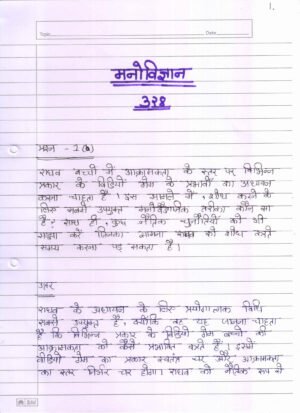 1.
Topic
Date
मनोविज्ञान
328
प्रश्न - 1 (a)
राघव बच्चों में आक्रामकता के स्तर पर विभिन्न
प्रकार के विडियो गेम्स के प्रभावों का अध्ययन
करना चाहता है। इस मामले में, शोध करने के
लिए सबसे उपयुक्त मनोवैज्ञानिक तरीका कौन सा
है? साथ ही, कुछ नैतिक चुनौतियों को भी
साझा करें जिनका सामना राघव को शोध करते
समय करना पड़ सकता है।
उत्तर
राघव के अध्ययन के लिए प्रयोगात्मक विधि
सबसे उपयुक्त है, क्योंकि वह यह जानना चाहता
है कि विभिन्न प्रकार के विडियो गेम बच्चों की
आक्रामकता को कैसे प्रभावित करते हैं। इसमें
वीडियो गेम का प्रकार स्वतंत्र चर और आक्रामकता
का स्तर निर्भर चर होगा। राघव को नैतिक रूप से